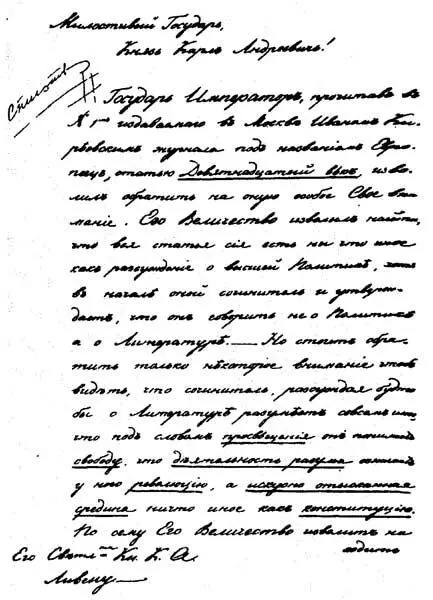 Милостивый Государь,
Князь Карлъ Андреевичь!
Государь Императоръ, прочитавъ въ
№ 1мъ издаваемаго въ Москвѣ Иваномъ Кир-
ѣевскимъ журнала подъ названіемъ Евро-
пеецъ, статью Девятнадцатый вѣкъ, изво-
лилъ обратить на оную особое Свое вни-
маніе. Его Величество изволилъ найти,
что вся статья сія есть ни что иное
какъ разсужденіе о высшей Политикѣ, хотя
въ началѣ оной сочинитель и утверж-
даетъ, что онъ говоритъ не о Политикѣ
а о Литературѣ. — Но стоитъ обра-
тить только нѣкоторое вниманіе чтобъ
видѣть, что сочинитель, разсуждая будто
бы о Литературѣ разумѣетъ совсѣмъ иное,
что подъ словомъ просвѣщеніе онъ понимаетъ
свободу, что дѣятельность разума означаетъ
у него революцію, а искусно отысканная
средина ничто иное какъ конституцію.
По сему Его Величество изволитъ на-
ходить
Его Светл. Кн. К. А.
Ливену —